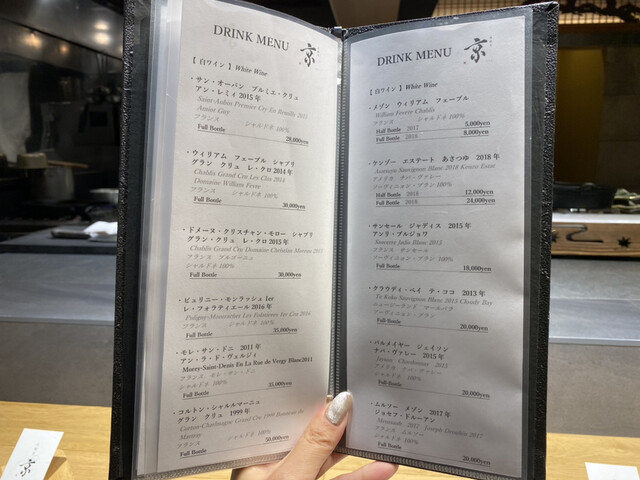 DRINK MENU 京
【 白ワイン 】 White Wine
・サン・オーバン プルミエ・クリュ
アン・レミィ 2015 年
Saint-Aubin Premier Cru En Remilly
フランス シャルドネ 100%
Full Bottle 28,000yen
・ウィリアム フェーブル シャブリ
グラン クリュ レ・クロ 2014 年
Chablis Grand Cru Les Clos 2014
Domaine William Fevre
フランス シャルドネ 100%
Full Bottle 30,000yen
・ドメーヌ・クリスチャン・モロー シャブリ
グラン・クリュ レ・クロ 2015 年
Chablis Grand Cru Domaine Christian Moreau 2015
フランス ブルゴーニュ
シャルドネ 100%
Full Bottle 30,000yen
・ピュリニー・モンラッシェ 1er
レ・フォラティエール 2016 年
フランス シャルドネ 100%
Full Bottle 35,000yen
・モレ・サン・ドニ 2011 年
アン・ラ・ド・ヴェルジィ
Morey-Saint-Denis En La Rue de Vergy Blanc2011
フランス モレ・サン・ドニ
シャルドネ 100%
Full Bottle 25,000yen
・コルトン・シャルルマーニュ
グラン クリュ 1999 年
フランス シャルドネ 100%
Full Bottle 50,000yen
DRINK MENU 京
【 白ワイン 】 White Wine
・メゾン ウィリアム フェーブル
William Fevre Chablis
フランス シャルドネ 100%
Half Bottle 2017 5,000yen
Full Bottle 2018 8,000yen
・ケンゾー エステート あさつゆ 2018 年
Asatsuyu Sauvignon Blanc 2018 Kenzo Estate
アメリカ ナパ・ヴァレー
ソーヴィニョン・ブラン 100%
Half Bottle 2018 12,000yen
Full Bottle 2018 24,000yen
・サンセール ジャディス 2015 年
アンリ・ブルジョワ
Sancerre Jadis Blanc 2015
フランス サンセール
ソーヴィニョン・ブラン 100%
Full Bottle 18,000yen
・クラウディ・ベイ テ・ココ 2013 年
Te Koko Sauvignon Blanc 2013 Cloudy Bay
ニュージーランド マールバラ
ソーヴィニョン・ブラン
Full Bottle 20,000yen
・パルメイヤー ジェイソン
ナパ・ヴァレー 2015 年
Jayson Chardonnay 2015
アメリカ ナパ・ヴァレー
シャルドネ 100%
Full Bottle 20,000yen
・ムルソー メゾン 2017 年
ジョセフ・ドルーアン
Meursault Joseph Drouhin 2017
フランス ムルソー
シャルドネ 100%
Full Bottle 20,000yen
京